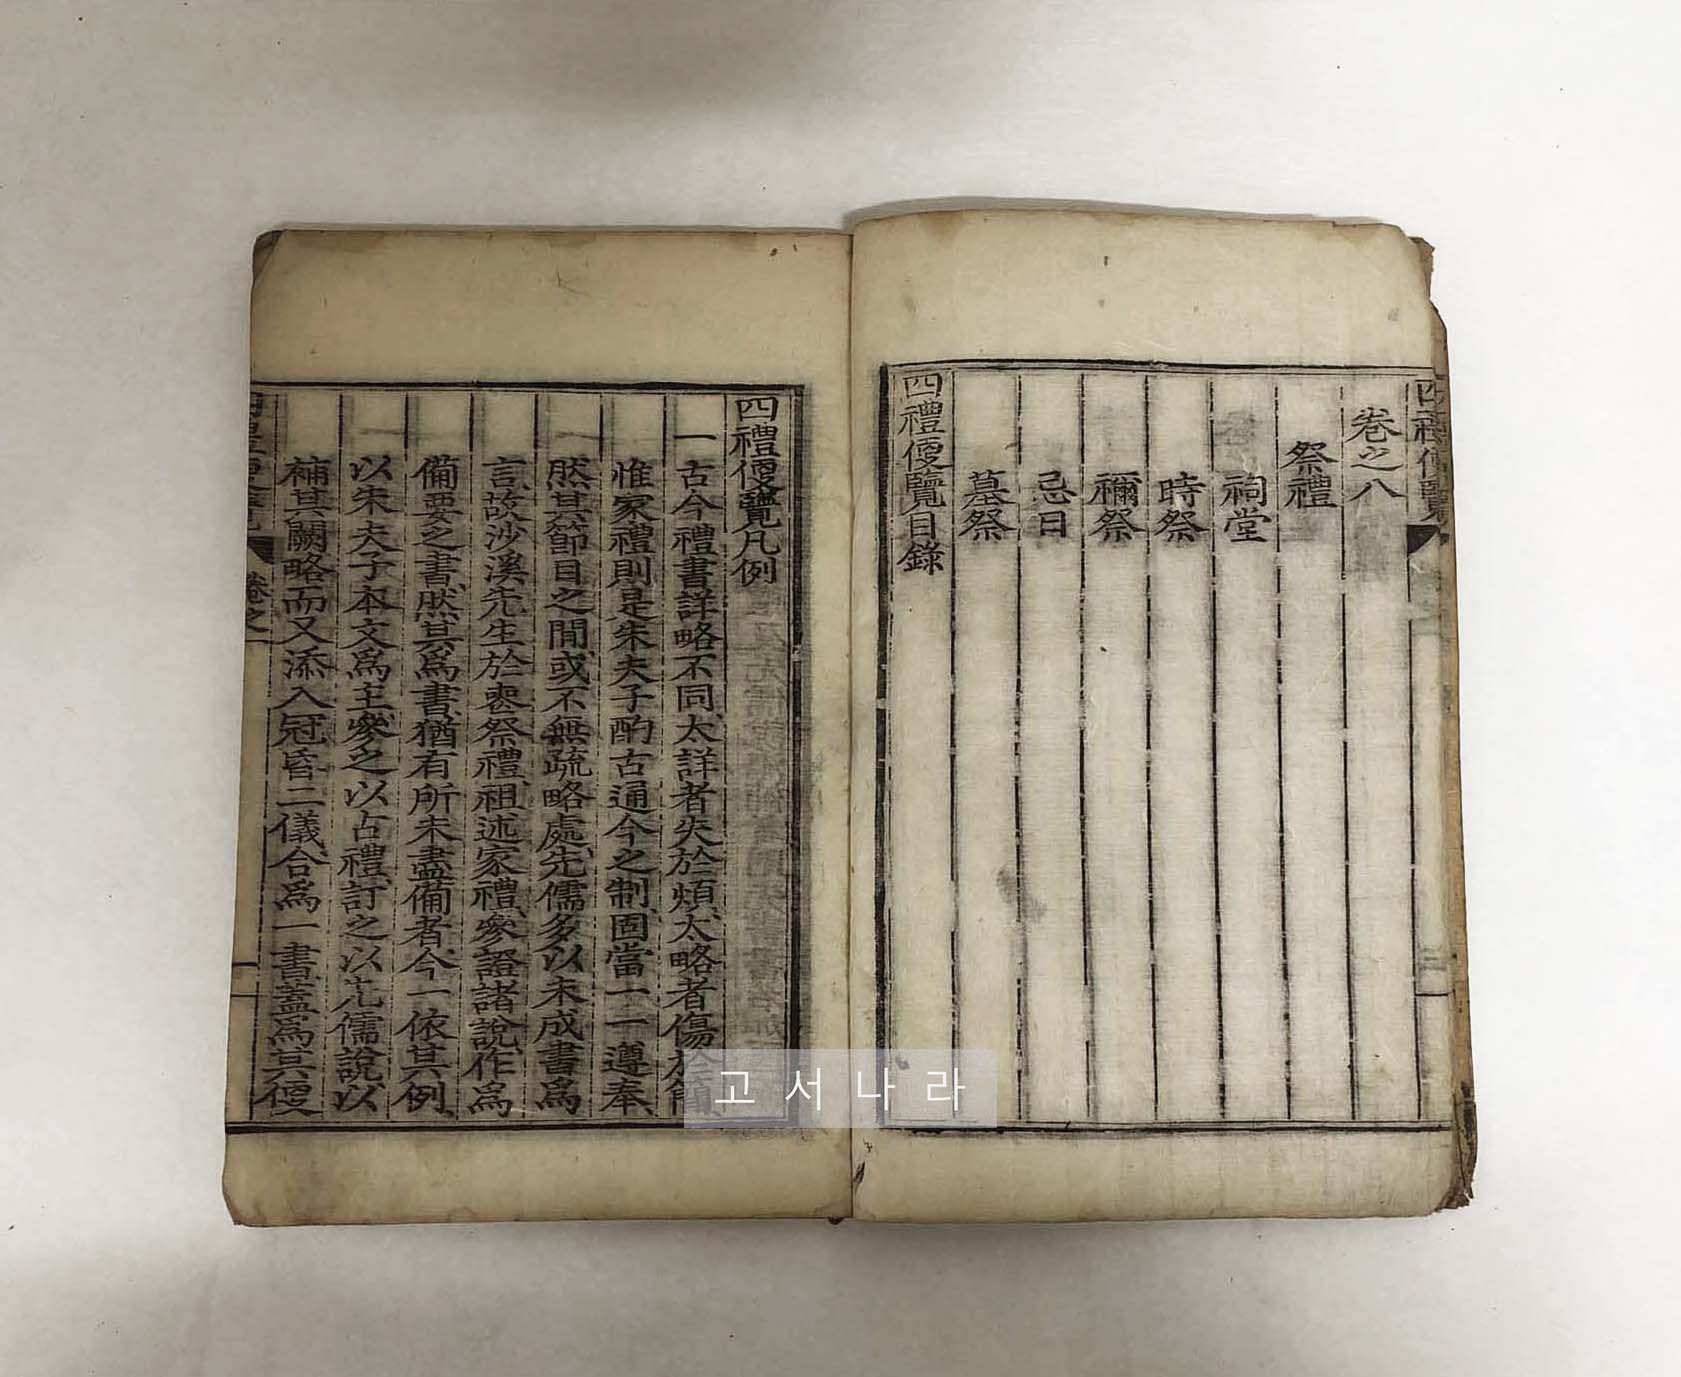 四禮便覽
卷之八
祭禮
祠堂
時祭
禰祭
忌日
墓祭
四禮便覽目錄
四禮便覽凡例
一古今禮書詳略不同太詳者失於煩太略者傷於簡
惟家禮則是朱夫子酌古通今之制固當一一遵奉
然其節目之間或不無疏略處先儒多以未成書爲
言故沙溪先生於喪祭禮祖述家禮參證諸說作爲
備要之書然其爲書猶有所未盡備者今一依其例
以朱夫子本文爲主參之以古禮訂之以先儒說以
補其闕略而又添入冠昏二儀合爲一書蓋爲其便
卷之
고서나라